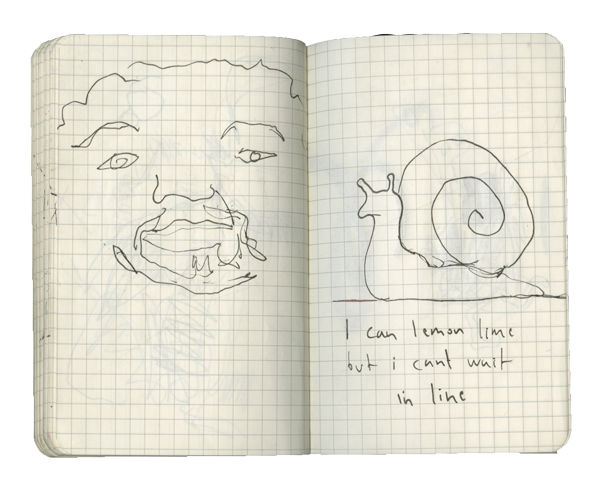 I can lemon lime
but i cant wait
in line